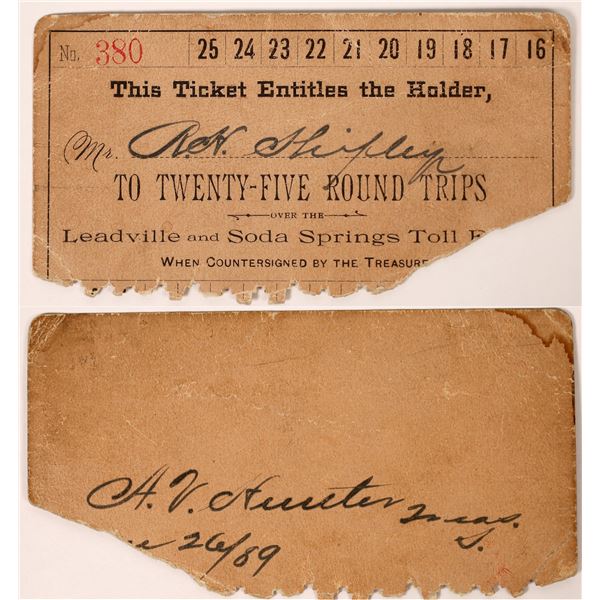 No. 380 25 24 23 22 21 20 19 18 17 16
This Ticket Entitles the Holder,
Mr. R.H. Shipley
TO TWENTY-FIVE ROUND TRIPS
OVER THE
Leadville and Soda Springs Toll
WHEN COUNTERSIGNED BY THE TREASURE
A. V. Hunter Treas.
S.
26/89